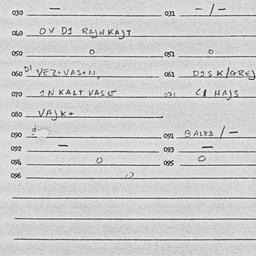 030 — 031 -/-
040 OV D1 RAJNKAJT
050 0 051 0
060 D1 VEZ+VAS+N, 061 D1SK/GREJ
070 1NKALTVASE 071 C1 HAJS
080 VAJK+
090 091 BAL83/-
092 — 093 —
094 0 095 0
096 0